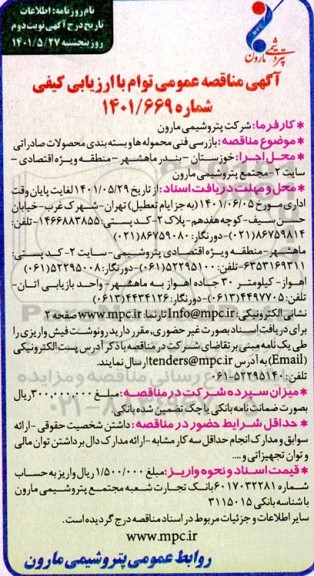 نام روزنامه: اطلاعات
تاریخ درج آگهی نوبت دوم
روز پنجشنبه ۱۴۰۱/۵/۲۷
پتروشیمی مارون
آگهی مناقصه عمومی توام با ارزیابی کیفی
شماره ۱۴۰۱/۶۶۹
* کارفرما: شرکت پتروشیمی مارون
* موضوع مناقصه: بازرسی فنی محموله ها و بسته بندی محصولات صادراتی
* محل اجرا: خوزستان - بندر ماهشهر - منطقه ویژه اقتصادی -
سایت ۲- مجتمع پتروشیمی مارون
* محل و مهلت دریافت اسناد: از تاریخ ۱۴۰۱/۰۵/۲۹ لغایت پایان وقت
اداری مورخ ۱۴۰۱/۰۶/۰۵ (به جز ایام تعطیل) تهران- شهرک غرب- خیابان
حسن سیف- کوچه هفدهم- پلاک ۲- کد پستی: ۱۴۶۶۸۸۳۸۵۵- تلفن:
۸۶۷۵۹۸۱۴ (۰۲۱)- دورنگار: ۸۶۷۵۹۰۸۰ (۰۲۱)
ماهشهر- منطقه ویژه اقتصادی پتروشیمی- سایت ۲- کد پستی:
۶۳۵۳۱۶۹۳۱۱- تلفن: ۵۲۲۹۵۱۰۰ (۰۶۱)- دورنگار: ۵۲۲۹۵۰۰۸ (۰۶۱)
اهواز - کیلومتر ۳۰ جاده اهواز به ماهشهر - واحد بازیابی اتان-
تلفن: ۴۴۹۷۷۰۵ (۰۶۱۳)- دورنگار: ۴۴۳۴۱۲۶ (۰۶۱۳)
نشانی الکترونیکی: Info@mpc.ir تارنما: www.mpc.ir صفحه ۲
برای دریافت اسناد بصورت غیر حضوری، مقرر دارید رونوشت فیش واریزی را
طی یک نامه مبنی بر تقاضای شرکت در مناقصه با ذکر آدرس پست الکترونیکی
(Email) به آدرس tenders@mpc.ir ارسال نمایند.
تلفن: ۵۲۲۹۵۱۴۰-۰۶۱
* میزان سپرده شرکت در مناقصه: مبلغ ۳۰۰۰۰۰۰۰۰۰ ریال
بصورت ضمانت نامه بانکی یا چک تضمین شده بانکی
* حداقل شرایط حضور در مناقصه: داشتن شخصیت حقوقی - ارائه
سوابق و مدارک انجام حداقل سه کار مشابه - ارائه مدارک دال بر داشتن توان مالی
و توان تجهیزاتی و ....
* قیمت اسناد و نحوه واریز: مبلغ ۱/۵۰۰/۰۰۰ ریال واریز به حساب
شماره ۶۰۱۷۰۳۲۲۸۱ بانک تجارت شعبه مجتمع پتروشیمی مارون
با شناسه بانکی ۳۱۱۵۰۱۵
سایر اطلاعات و جزئیات مربوط در اسناد مناقصه درج گردیده است.
www.mpc.ir
روابط عمومی پتروشیمی مارون